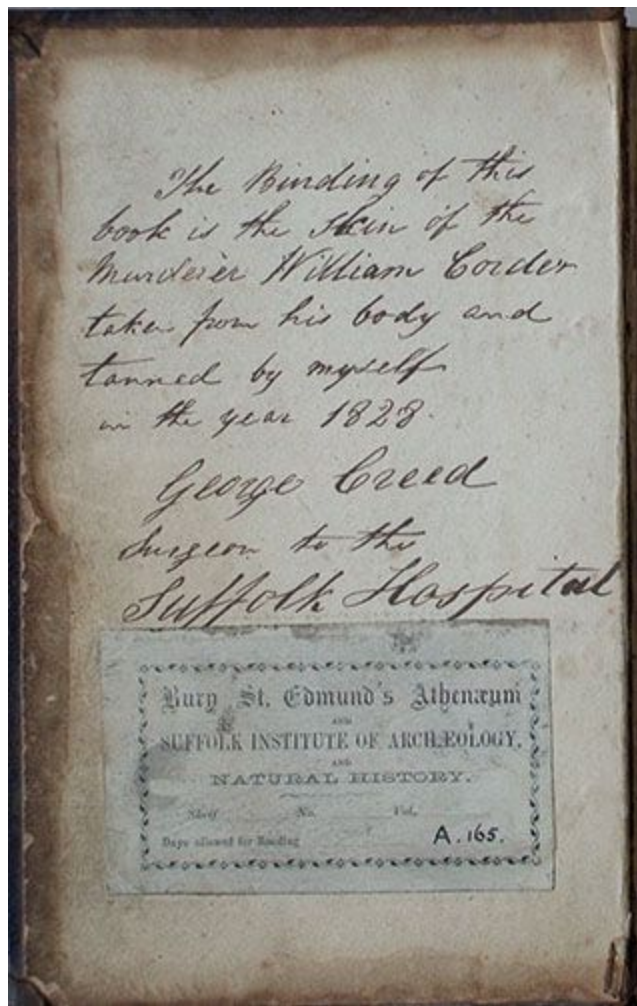 The Binding of this
book is the skin of the
Murderer William Corder
taken from his body and
tanned by myself
in the year 1828.
George Creed
Surgeon to the
Suffolk Hospital
Bury St. Edmund's Athenæum
AND
SUFFOLK INSTITUTE OF ARCHÆOLOGY,
AND
NATURAL HISTORY.
Shelf No. Vol.
Days allowed for Reading A.165.